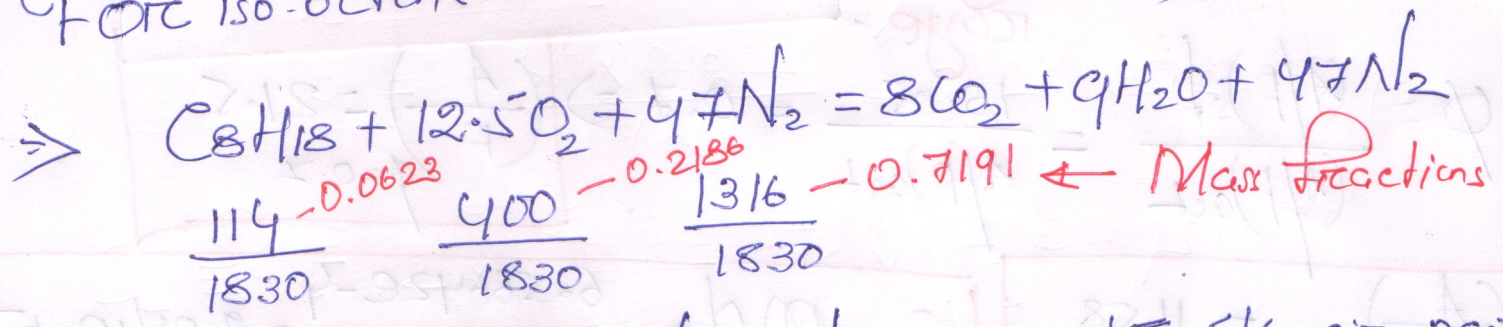 For iso-octan
⇒ C8H18 + 12.5O₂ + 47N₂ = 8CO₂ + 9H₂O + 47N₂
114/1830 - 0.0623 400/1830 - 0.2186 1316/1830 - 0.7191 ← Mass fractions